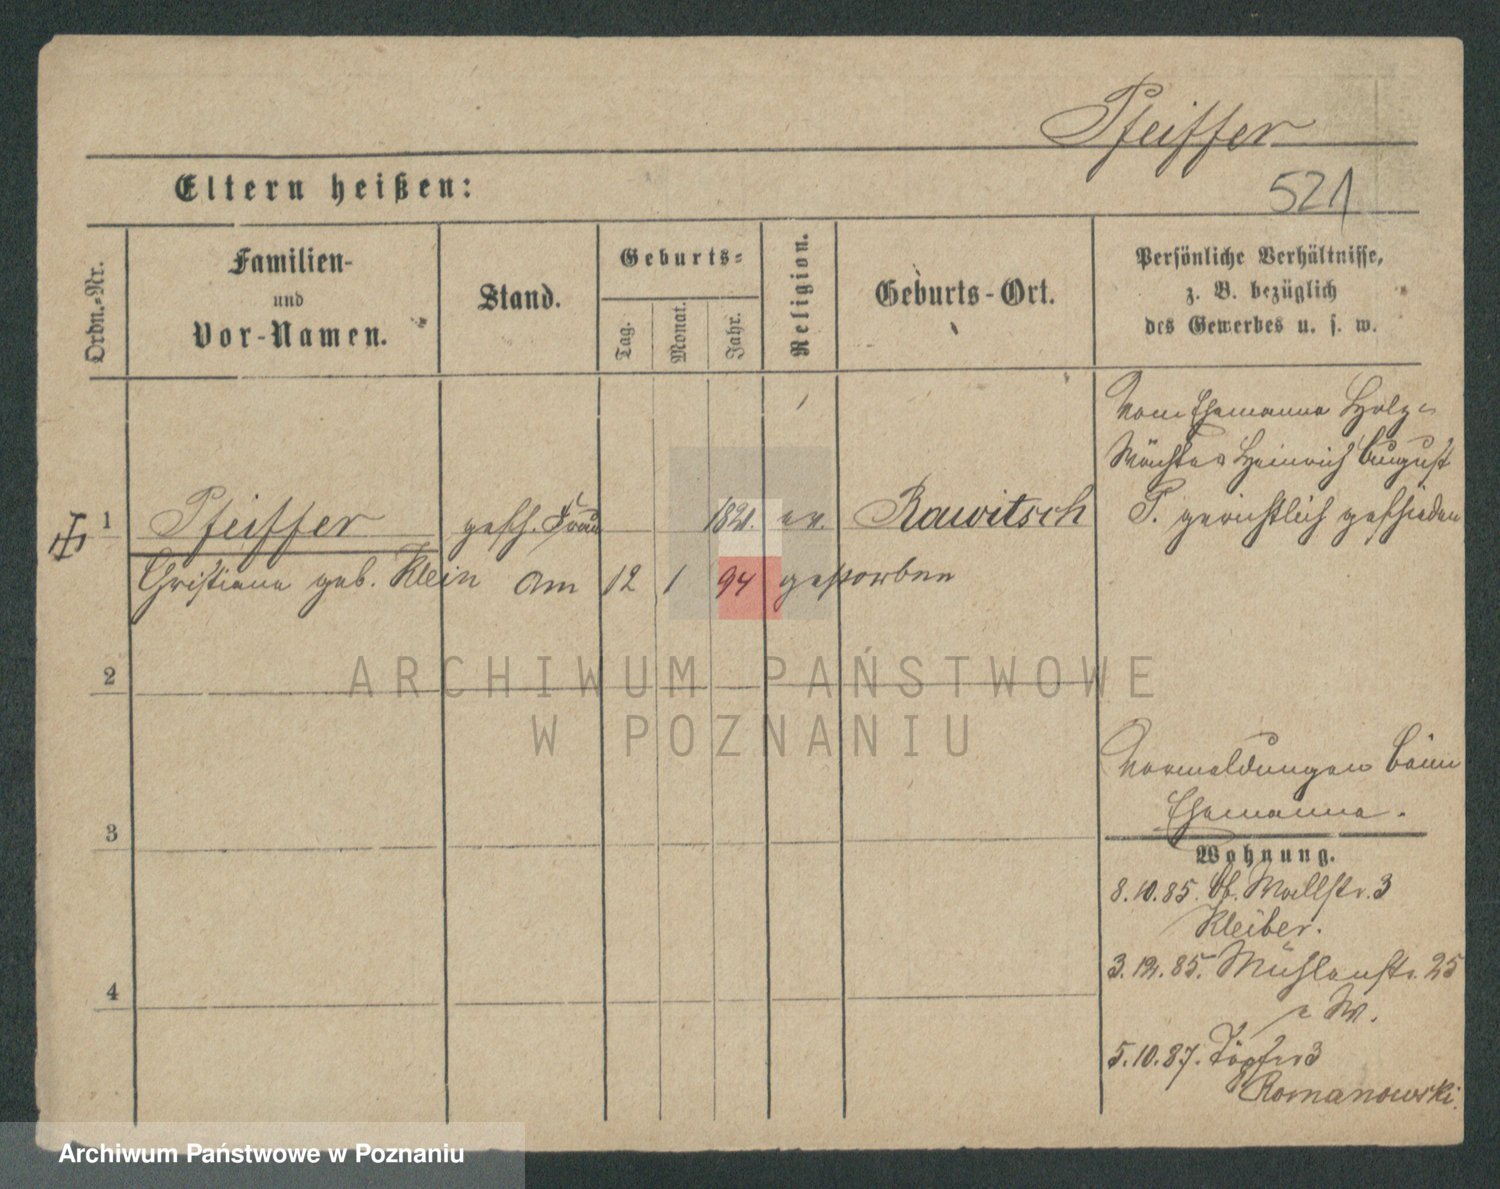 Pfeiffer
Eltern heißen:
521
Ordn.-Nr.
Familien-
und
Vor-Namen.
Stand.
Geburts-
Tag.
Monat.
Jahr.
Religion.
Geburts-Ort.
Persönliche Verhältnisse,
z. B. bezüglich
des Gewerbes u. s. w.
Vom Ehemanne Holz-
Wächter Heinrich August
P. gerichtlich geschieden
1 Pfeiffer gesch. Frau 1821. ev. Rawitsch
Christiane geb. Klein am 12 1 94 gestorben
2
ARCHIWUM PAŃSTWOWE
W POZNANIU
Vormeldungen beim
Ehemanne.
3
Wohnung.
8.10.85. Wallstr. 3
Kleiber.
3.12.85. Mühlenstr. 25
W.
4
5.10.87. Töpfer 3
Romanowski.
Archiwum Państwowe w Poznaniu